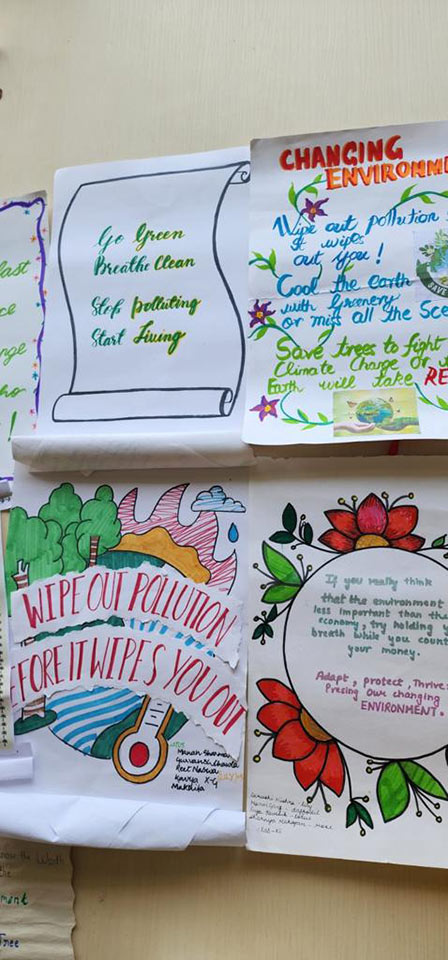 last
ce
nge
ho
!
Go Green
Breathe Clean
Stop Polluting
Start Living
CHANGING
ENVIRONME
Wipe out pollution
It wipes
out you!
Cool the earth
with Greenery
or miss all the Sce
Save trees to fight
Climate Change or
Earth will take RE
SAVE
WIPE OUT POLLUTION
EFORE IT WIPES YOU OUT
Manan Sharma
Kavya X-G
If you really think
that the environment
less important than the
economy, try holding
breath while you count
your money.
Adapt, protect, Thrive:
Presing Our changing
ENVIRONMENT.
know the Worth
the
ment
Tree